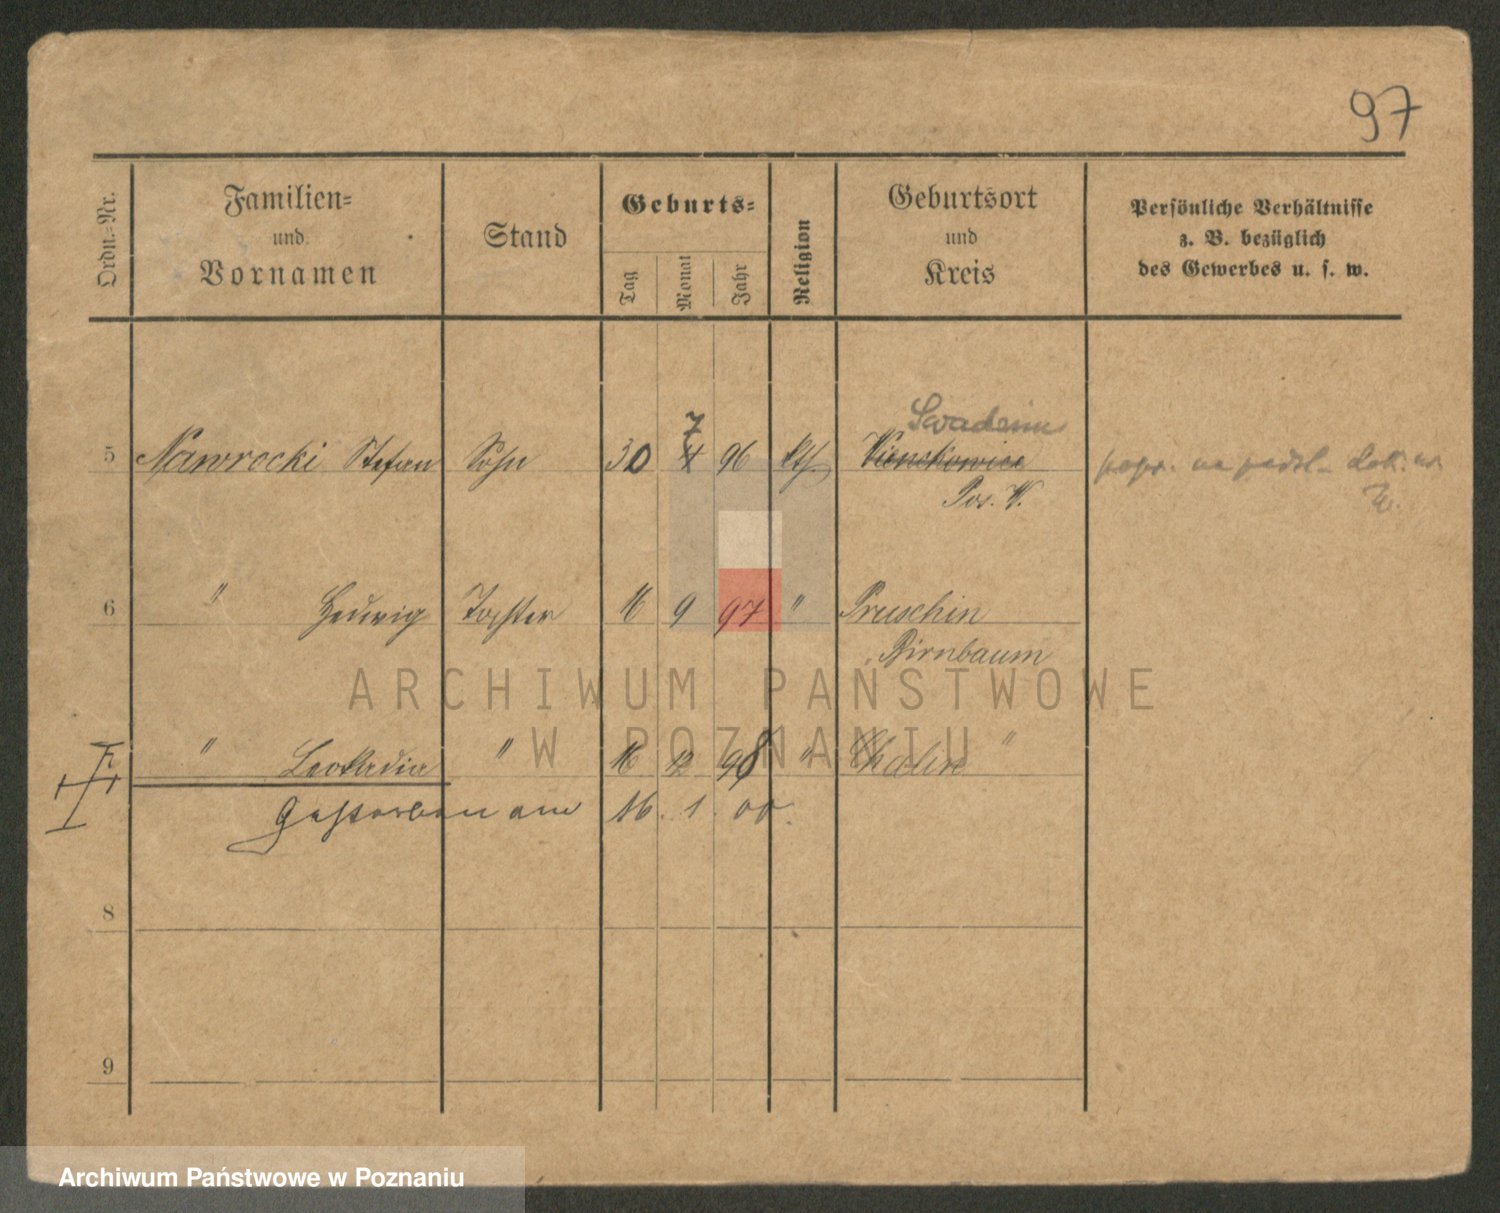 97
Ordn.-Nr.
Familien-
und
Vornamen
Stand
Geburts-
Tag
Monat
Jahr
Religion
Geburtsort
und
Kreis
Persönliche Verhältnisse
z. B. bezüglich
des Gewerbes u. s. w.
7
Swadzim
5 Nawrocki Stefan Sohn 30 96 kth. popr. na podst.
Pos. W.
6 " Hedwig Tochter 16 9 97 " Pruschin
Birnbaum
" Leokadia " 16 12 98 " "
Gestorben am 16. 1. 00.
8
9
ARCHIWUM PAŃSTWOWE
W POZNANIU
Archiwum Państwowe w Poznaniu